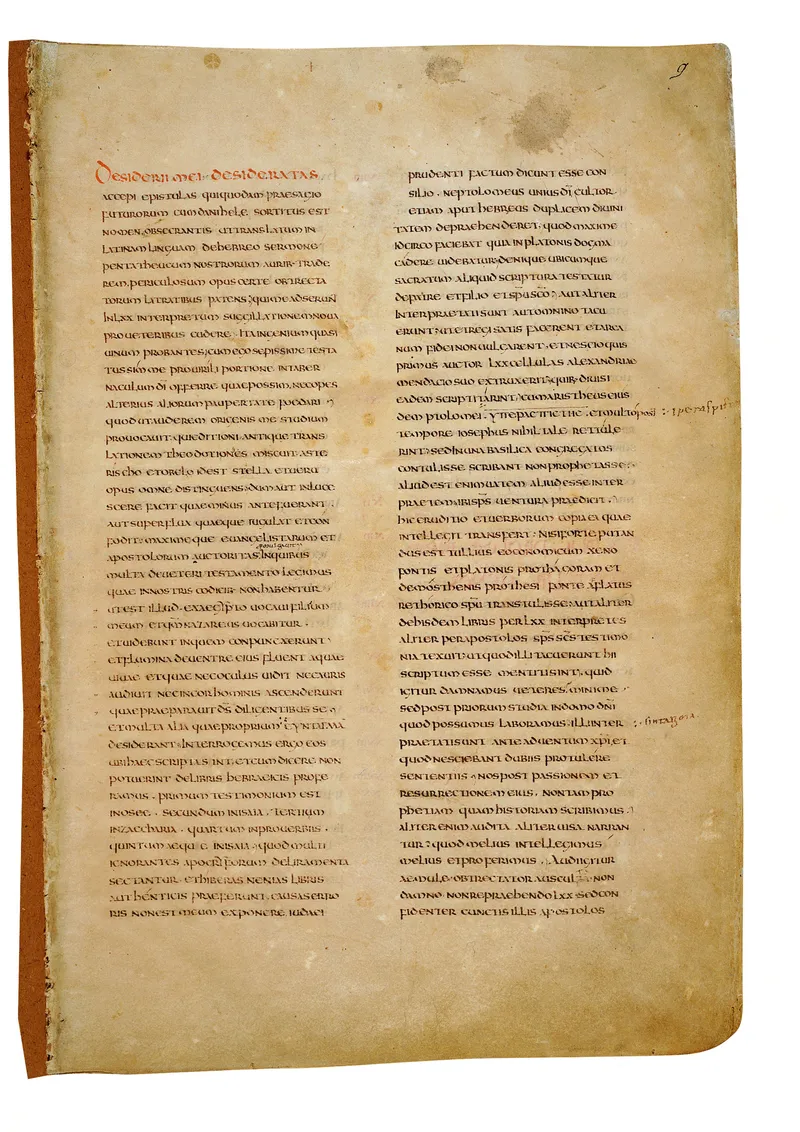 9
DESIDERII MEI DESIDERATAS
ACCEPI EPISTULAS QUI QUODAM PRAESAGIO
FUTURORUM CUM DANIHELE SORTITUS EST
NOMEN, OBSECRANTIS UT TRANSLATUM IN
LATINAM LINGUAM DE HEBREO SERMONE
PENTATHEUCUM NOSTRORUM AURIB· TRADE
REM, PERICULOSUM OPUS CERTE OBTRECTA
TORUM LATRATIBUS PATENS; QUI ME ADSERUN̄
IN LXX INTERPRETUM SUGGILLATIONEM NOUA
PRO UETERIBUS CUDERE, ITA INGENIUM QUASI
UINUM PROBANTES; CUM EGO SEPISSIME TESTA
TUS SIM ME PRO UIRILI PORTIONE IN TABER
NACULUM DĪ OFFERRE QUAE POSSIM, NEC OPES
ALTERIUS ALIORUM PAUPERTATE FOEDARI
QUOD UT AUDEREM ORIGENIS ME STUDIUM
PROUOCAUIT QUI EDITIONI ANTIQUE TRANS
LATIONEM THEODOTIONES MISCUIT ASTE
RISCHO ET OBELO ID EST STELLA ET UERU
OPUS OMNE DISTINGUENS; DUM AUT INLUCE
SCERE FACIT QUAE MINUS ANTE FUERANT
AUT SUPERFLUA QUAEQUE IUGULAT ET CON
FODIT· MAXIMEQUE EUANGELISTARUM ET
APOSTOLORUM AUCTORITAS IN QUIBUS
MULTA DE UETERI TESTAMENTO LEGIMUS
QUAE IN NOSTRIS CODICIB· NON HABENTUR
UT EST ILLUD· EX AEGȲPTO UOCAUI FILIUM
MEUM ET QM̄ NAZAREUS UOCABITUR
ET UIDEBUNT IN QUEM CONPUNXERUNT
ET FLUMINA DE UENTRE EIUS FLUENT AQUAE
UIUAE ET QUAE NEC OCULUS UIDIT NEC AURIS
AUDIUIT NEC IN COR HOMINIS ASCENDERUNT
QUAE PRAEPARAUIT DS̄ DILIGENTIBUS SE
ET MULTA ALIA QUAE PROPRIUM CYNTAΓMA
DESIDERANT· INTERROGEMUS ERGO EOS
UBI HAEC SCRIPTA SINT, ET CUM DICERE NON
POTUERINT DE LIBRIS HEBRAICIS PROFE
RAMUS· PRIMUM TESTIMONIUM EST
IN OSEE· SECUNDUM IN ISAIA· TERTIUM
IN ZACCHARIA· QUARTUM IN PROUERBIIS·
QUINTUM AEQUE IN ISAIA· QUOD MULTI
IGNORANTES APOCRIFORUM DELIRAMENTA
SECTANTUR· ET HIBERAS NENIAS LIBRIS
AUTHENTICIS PRAEFERUNT, CAUSAS ERRO
RIS NON EST MEUM EXPONERE· IUDAEI
PRUDENTI FACTUM DICUNT ESSE CON
SILIO· NE PTOLOMEUS UNIUS DĪ CULTOR
ETIAM APUT HEBREOS DUPLICEM DIUINI
TATEM DEPRAEHENDERET, QUOD MAXIME
IDCIRCO FACIEBAT QUIA IN PLATONIS DOGMA
CADERE UIDEBATUR· DENIQUE UBICUMQUE
SACRATUM ALIQUID SCRIPTURA TESTATUR
DE PATRE ET FILIO ET SPŪ SC̄O· AUT ALITER
INTERPRAETATI SUNT AUT OMNINO TACU
ERUNT· UT ET REGI SATIS FACERENT ET ARCA
NUM FIDEI NON UULGARENT, ET NESCIO QUIS
PRIMUS AUCTOR LXX CELLULAS ALEXANDRIAE
MENDACIO SUO EXTRUXERIT, QUIB· DIUISI
EADEM SCRIPTITARINT, CUM ARISTHEUS EIUS
DEM PTOLOMEI· ΥΠΕΡΑCΠΙCΤΗC· ET MULTO POST
TEMPORE IOSEPHUS NIHIL TALE RETTULE
RINT· SED IN UNA BASILICA CONGREGATOS
CONTULISSE SCRIBANT NON PROPHETASSE·
ALIUD EST ENIM UATEM ALIUD ESSE INTER
PRAETEM· IBI SPS̄ UENTURA PRAEDICIT·
HIC ERUDITIO ET UERBORUM COPIA EA QUAE
INTELLEGIT TRANSFERT· NISI FORTE PUTAN
DUS EST TULLIUS EOCONOMICUM XENO
FONTIS ET PLATONIS PROTHAGORAM ET
DEMOSTHENIS PROTHESI FONTE AFLATUS
RETHORICO SPŪ TRANSTULISSE· AUT ALITER
DE HISDEM LIBRIS PER LXX INTERPRETES
ALITER PER APOSTOLOS SPS̄ SC̄S TESTIMO
NIA TEXUIT· UT QUOD ILLI TACUERUNT HII
SCRIPTUM ESSE MENTITI SINT, QUID
IGITUR DAMNAMUS UETERES, MINIME·
SED POST PRIORUM STUDIA IN DOMO DN̄I
QUOD POSSUMUS LABORAMUS· ILLI INTER
PRAETATI SUNT ANTE ADUENTUM XP̄I, ET
QUOD NESCIEBANT DUBIIS PROTULERE
SENTENTIIS· NOS POST PASSIONEM ET
RESURRECTIONEM EIUS, NON TAM PRO
PHETIAM QUAM HISTORIAM SCRIBIMUS·
ALITER ENIM AUDITA ALITER UISA NARRAN
TUR· QUOD MELIUS INTELLEGIMUS
MELIUS ET PROFERIMUS· AUDI IGITUR
AEMULE· OBTRECTATOR AUSCULTA· NON
DAMNO NON REPRAEHENDO LXX· SED CON
FIDENTER CUNCTIS ILLIS APOSTOLOS